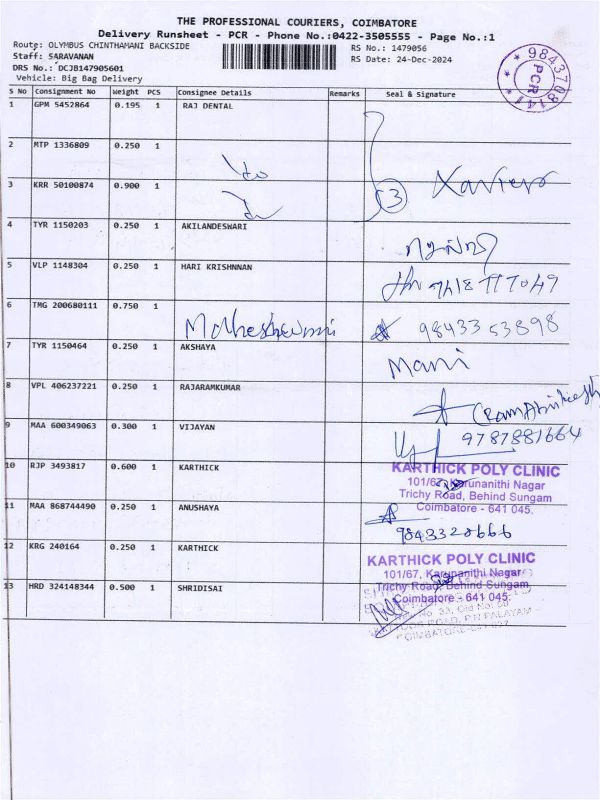 THE PROFESSIONAL COURIERS, COIMBATORE
Delivery Runsheet - PCR - Phone No.:0422-3505555 - Page No.:1
Route: OLYMBUS CHINTHAMANI BACKSIDE
RS No.: 1479056
Staff: SARAVANAN
RS Date: 24-Dec-2024
DRS No.: DCJB147905601
Vehicle: Big Bag Delivery
9843708141
PCR
S No Consignment No Weight PCS Consignee Details Remarks Seal & Signature
1 GPM 5452864 0.195 1 RAJ DENTAL
2 MTP 1336809 0.250 1
3 KRR 50100874 0.900 1
3 Xaviero
4 TYR 1150203 0.250 1 AKILANDESWARI
5 VLP 1148304 0.250 1 HARI KRISHNNAN
6 TMG 200680111 0.750 1 Maheshwari 98433 53898
7 TYR 1150464 0.250 1 AKSHAYA Mani
8 VPL 406237221 0.250 1 RAJARAMKUMAR
9 MAA 600349063 0.300 1 VIJAYAN 9787881664
10 RJP 3493817 0.600 1 KARTHICK
KARTHICK POLY CLINIC
101/67, Karunanithi Nagar
Trichy Road, Behind Sungam
Coimbatore - 641 045.
11 MAA 868744490 0.250 1 ANUSHAYA
9843328666
12 KRG 240164 0.250 1 KARTHICK
KARTHICK POLY CLINIC
101/67, Karunanithi Nagar
Trichy Road, Behind Sungam
Coimbatore - 641 045.
13 HRD 324148344 0.500 1 SHRIDISAI